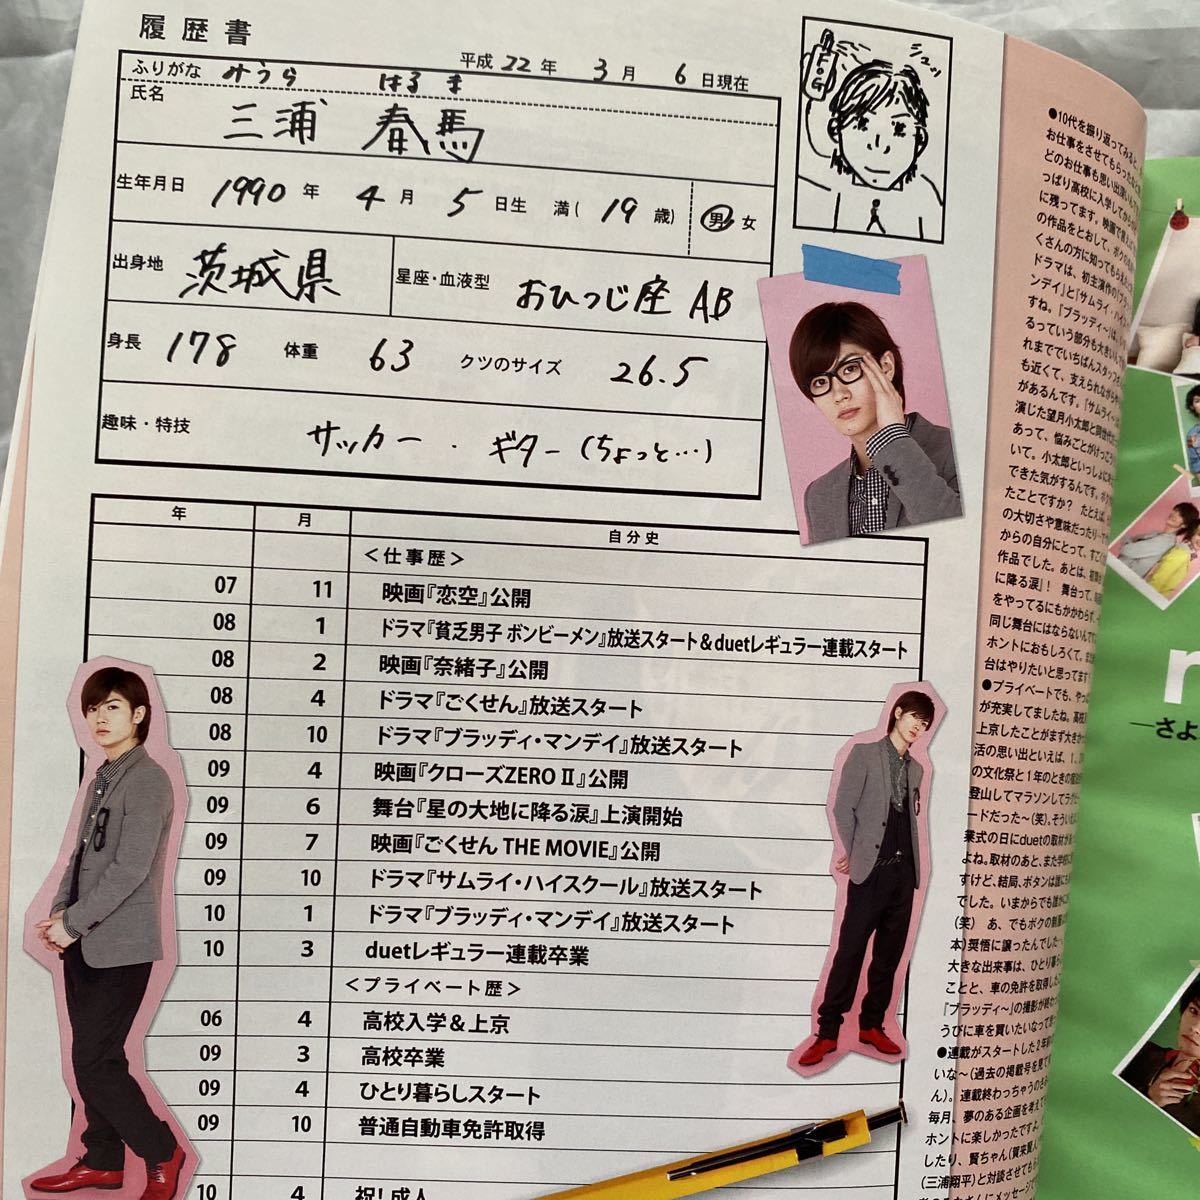 履歴書
平成 22 年 3 月 6 日現在
ふりがな みうら はるま
氏名 三浦 春馬
生年月日 1990 年 4 月 5 日生 満( 19 歳) 男 女
出身地 茨城県 星座・血液型 おひつじ座 AB
身長 178 体重 63 クツのサイズ 26.5
趣味・特技 サッカー . ギター(ちょっと…)
年 月 自分史
<仕事歴>
07 11 映画『恋空』公開
08 1 ドラマ『貧乏男子 ボンビーメン』放送スタート&duetレギュラー連載スタート
08 2 映画『奈緒子』公開
08 4 ドラマ『ごくせん』放送スタート
08 10 ドラマ『ブラッディ・マンデイ』放送スタート
09 4 映画『クローズZERO II』公開
09 6 舞台『星の大地に降る涙』上演開始
09 7 映画『ごくせん THE MOVIE』公開
09 10 ドラマ『サムライ・ハイスクール』放送スタート
10 1 ドラマ『ブラッディ・マンデイ』放送スタート
10 3 duetレギュラー連載卒業
<プライベート歴>
06 4 高校入学&上京
09 3 高校卒業
09 4 ひとり暮らしスタート
09 10 普通自動車免許取得
10 4 祝!成人
●10代を振り返ってみると、
お仕事をさせてもらった
どのお仕事も思い出深い
っぱり高校に入学してから
に残ってます。映画で
の作品をとおして、ボクの
くさんの方に知ってもらえた
ドラマは、初主演作の『ブラ
ンデイ』と『サムライ・ハイ
すね。『ブラッディ～』は、
るっていう部分も大きい
れまででいちばんスタッフさ
も近くて、支えられながら
があるんです。『サムライ～
演じた望月小太郎と同世代
あって、悩みごとがけっこう
いて。小太郎といっしょに
できた気がするんです。ボク
たことですか? たとえば、
の大切さや意味だったり
からの自分にとって、すごく
作品でした。あとは、初舞台
に降る涙』! 舞台って、毎
をやってるにもかかわらず、
同じ舞台にはならないんで
ホントにおもしろくて。ま
台はやりたいと思ってます
●プライベートでも、やっぱ
が充実してましたね。高校
上京したことがまず大きか
活の思い出といえば、1、2
の文化祭と1年のときの
登山してマラソンしてラグビ
ードだった～(笑)。そういえ
業式の日にduetの取材があ
よね。取材のあと、また学校
すけど、結局、ボタンは誰にも
でした。いまからでも誰か
(笑) あ、でもボクの制服は
本)奨悟に譲ったんでした
大きな出来事は、ひとり暮ら
ことと、車の免許を取得した
『ブラッディ～』の撮影が終わ
うびに車を買いたいなって思
●連載がスタートした2年前
いな～(過去の掲載号を見て
ん)。連載終わっちゃうのさ
毎月、夢のある企画を考えて
ホントに楽しかったですよ。
したり、賢ちゃん(賀来賢人)
(三浦翔平)と対談させてもら
―さよ